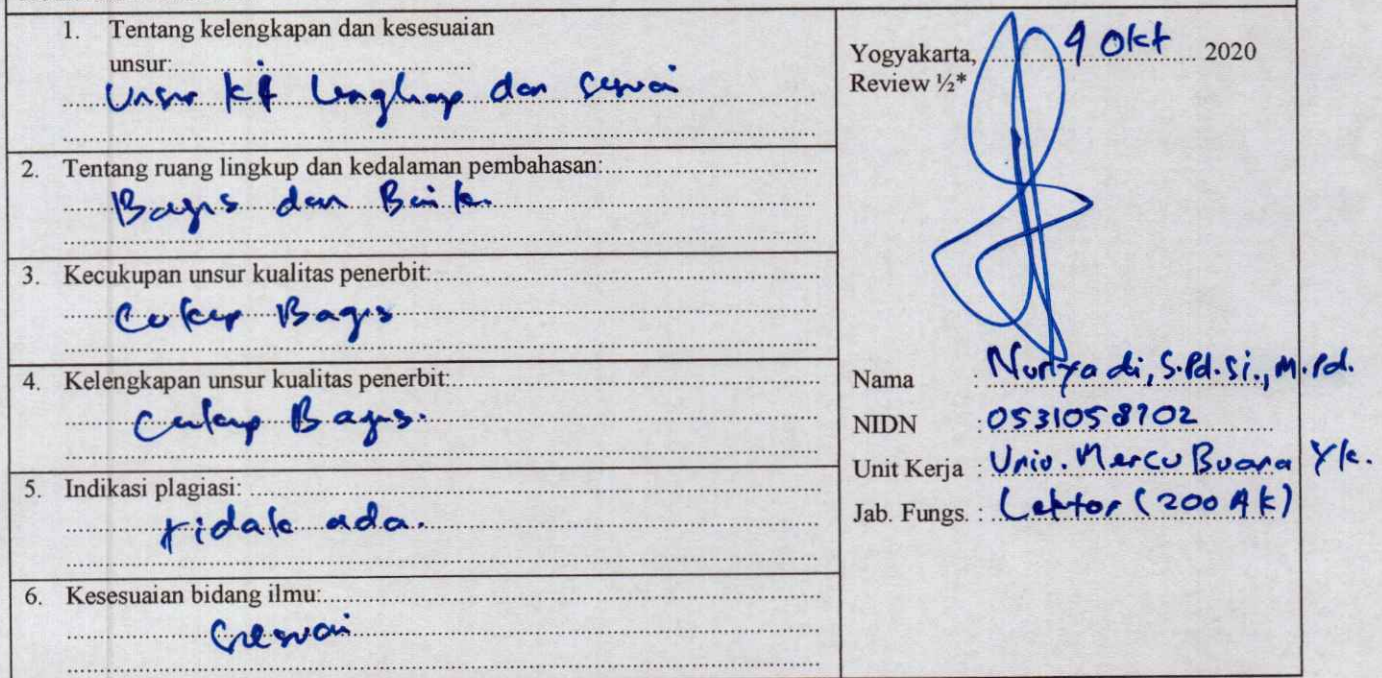 1. Tentang kelengkapan dan kesesuaian
unsur:
Unsur kt lengkap dan sesuai
2. Tentang ruang lingkup dan kedalaman pembahasan:
Bagus dan Baik
3. Kecukupan unsur kualitas penerbit:
Cukup Bagus
4. Kelengkapan unsur kualitas penerbit:
Cukup Bagus.
5. Indikasi plagiasi:
tidak ada.
6. Kesesuaian bidang ilmu:
Sesuai
Yogyakarta, 9 Okt 2020
Review ½*
Nama : Nuryadi, S.Pd.Si., M.Pd.
NIDN : 0531058902
Unit Kerja : Univ. Mercu Buana Yk.
Jab. Fungs. : Lektor (200 AK)